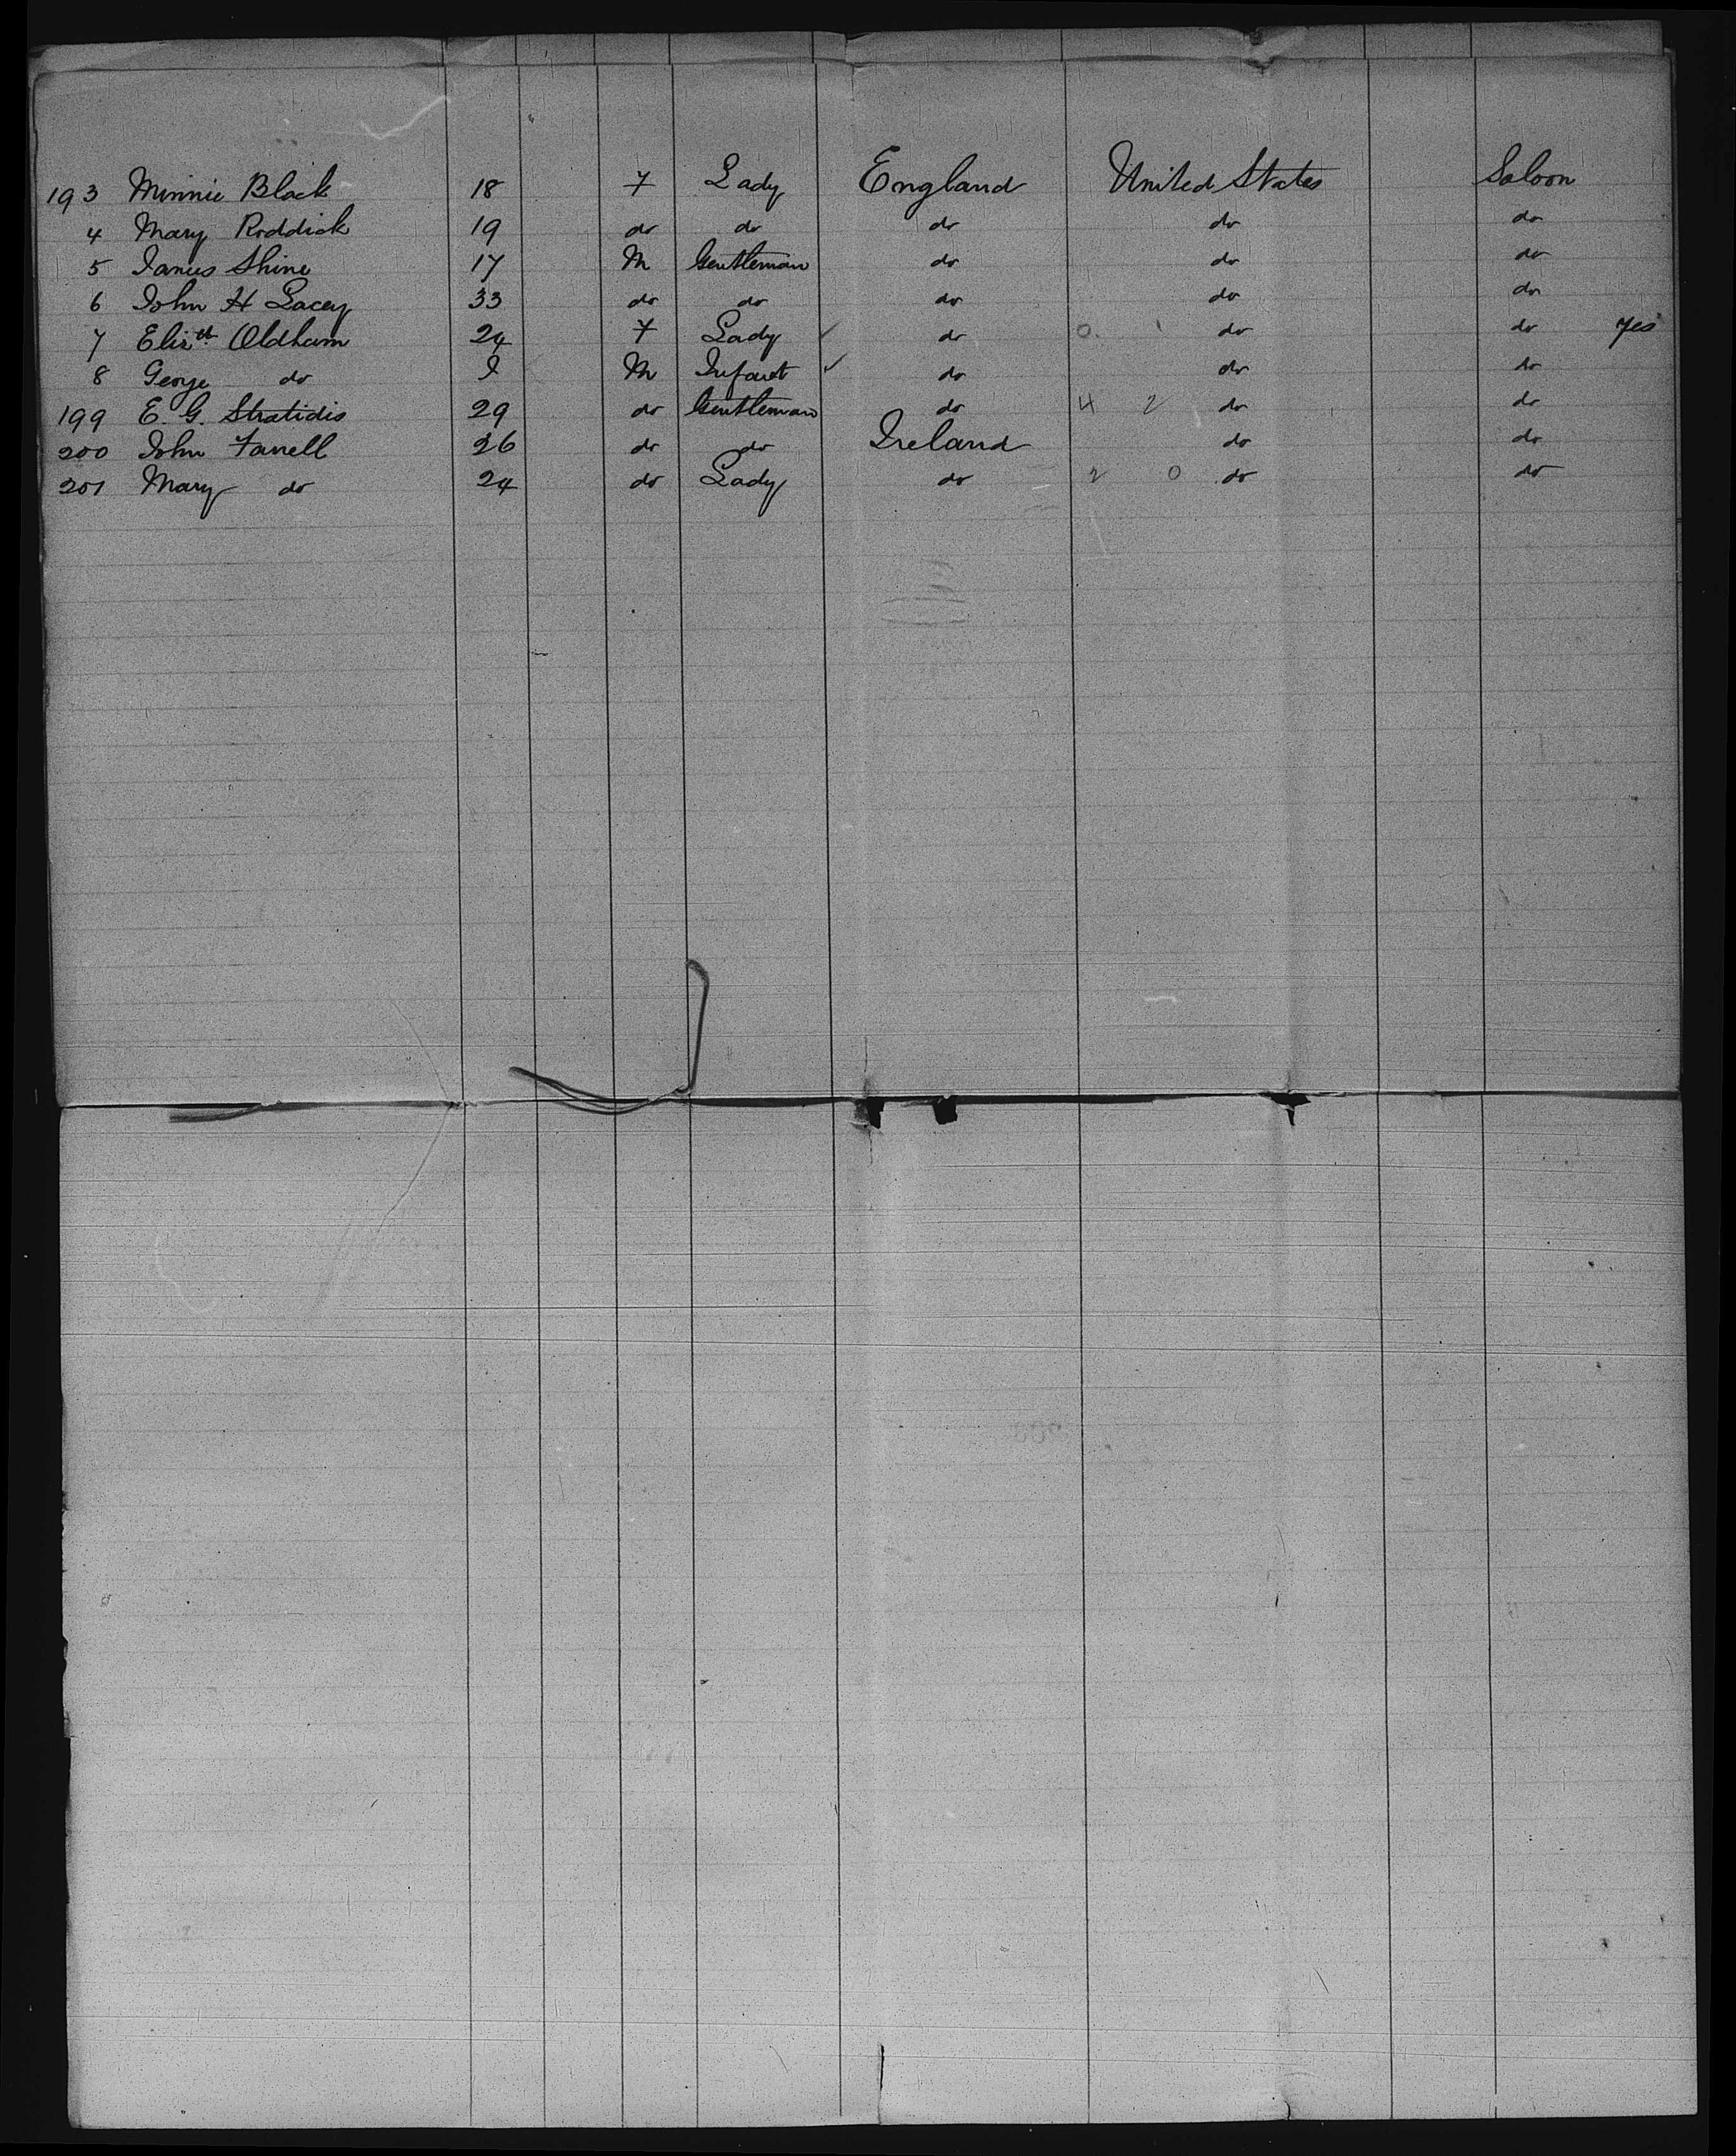 193 Minnie Black 18 F Lady England United States Saloon
4 Mary Roddick 19 do do do do do
5 James Shine 17 M Gentleman do do do
6 John H Lacey 33 do do do do do
7 Elizth Oldham 24 F Lady do 0. 1 do do Yes
8 George do I M Infant do do do
199 E. G. Stratidis 29 do Gentleman do 4 2 do do
200 John Farrell 26 do do Ireland do do
201 Mary do 24 do Lady do 2 0 do do